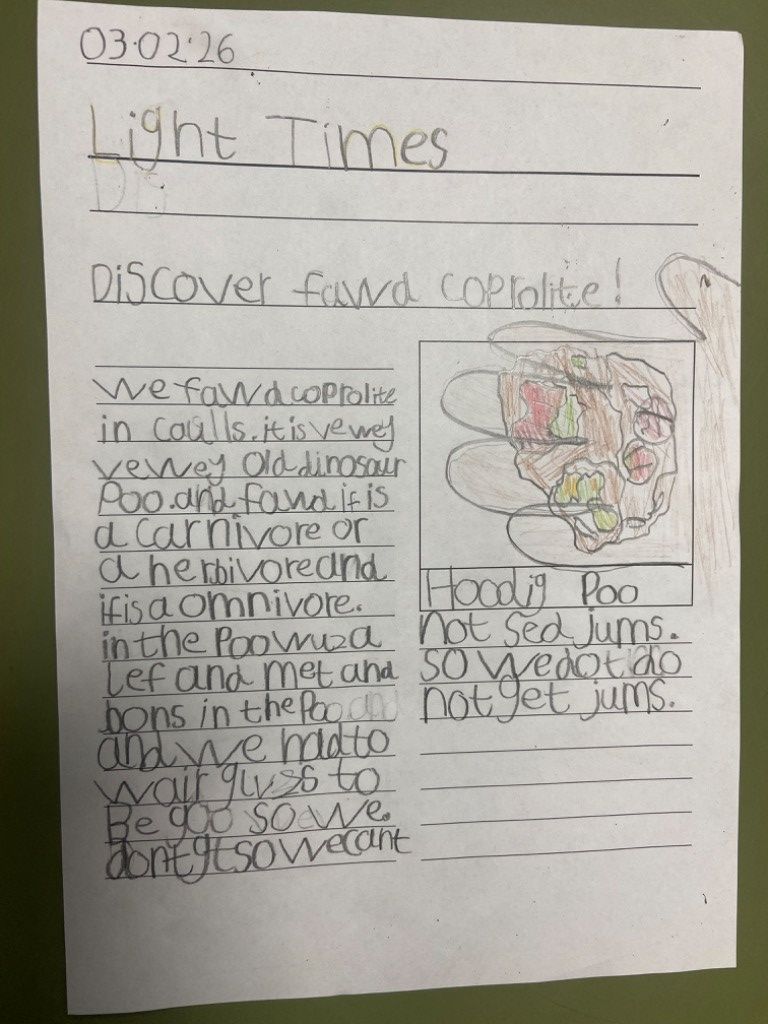 03.02.26
Light Times
Discover fawd coprolite!
we fawd coprolite
in coalls. it is vewey
vewey Old dinosaur
Poo. and fawd if is
a carnivore or
a herbivore and
if is a omnivore.
in the Poo wuz a
Lef and met and
bons in the Poo and
and we had to
wair gluzs to
Be goo so we.
dont gt so we cant
Hoodig Poo
not sed jums.
so we dot do
not get jums.